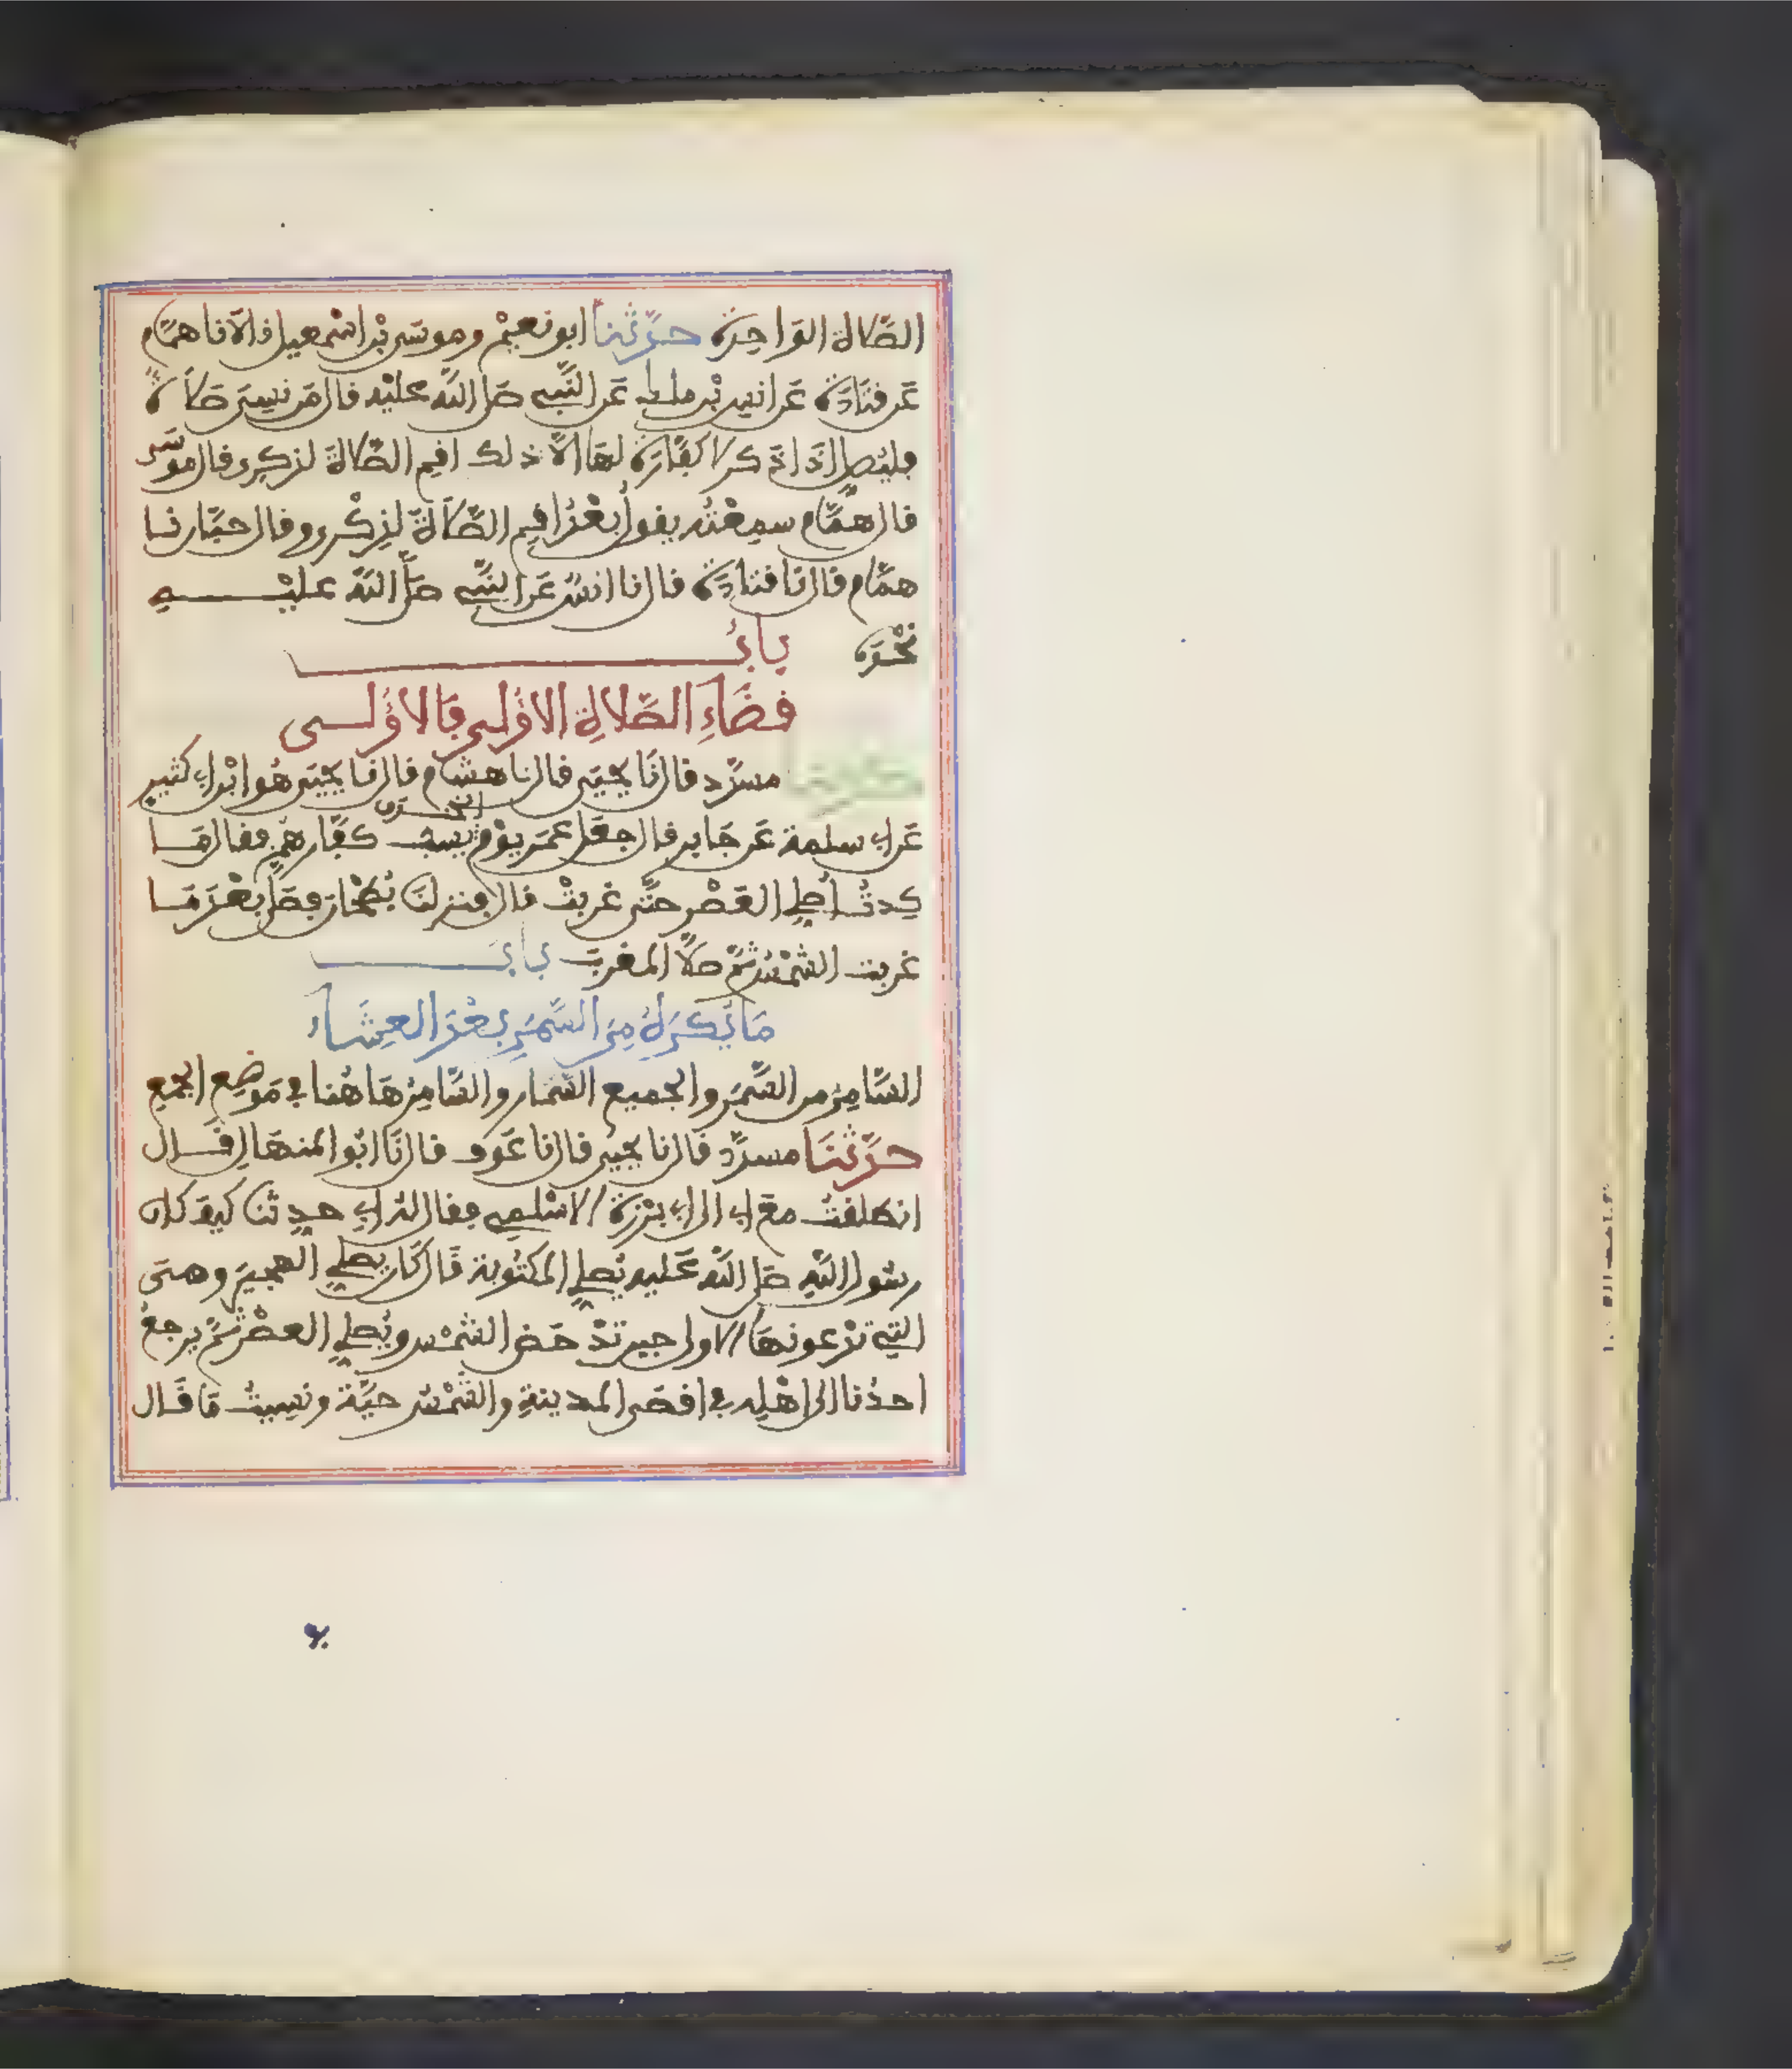 الصَّلاة الوَاحِدَة حدَّثنا ابو نعيمْ وموسَى بْن اسْمعيل فالَا نا همَّام
عَن فتَادَة عَن انس بْن ملك عَن النَّبِي صَلى اللَّه عليْه فال مَن نسِىَ صَلَاةً
فليُصلِّ إذَا ذَكر لا كفَّارَة لهَا الَّا ذلك افِم الصَّلاةَ لذكرِى فال موسَى
فال همَّام سمِعْتُه يفول بعْدُ افِم الصَّلَاةَ لِذِكْرِى وفال حبَّان نا
همَّام فال نا فتادَة فال نا انسٌ عَن النَّبِي صَلَّى اللَّه عليْهِ
نحْوَه بابُ
فضَاءِ الصَّلَاةِ الاوْلى فَالاوْلى
حدثنا مسدَّد فال نَا يحيَى فال نا هشام فال نا يحيَى هُوَ ابْن ابِى كثيرٍ
عَن ابِى سلمة عَن جَابر فال جعَل عمَر يوْمَ الخندق يسبُّ كفَّارهُمْ ففال مَا
كِدتُ اُصلِي العَصْر حتَّى غربتْ فال فنزلنَا بُطْحَان فصَلَّى بعْدَ مَا
غربت الشمْسُ ثمَّ صَلَّا المغربَ بابُ
مَا يُكرَهُ مِنَ السَّمَرِ بعْدَ العِشَاءِ
السَّامِرُ من السَّمَر والجميع السُّمَّار والسَّامِرُ هَاهُنا فِى مَوضِع الجمع
حدَّثنَا مسدَّد فال نا يحيى فال نا عَوف فال نَا ابُو المنهَال فَال
انطلفتُ معَ ابِى الى ابِى بَرْزة الاسْلمِي ففال له ابِى حدِثنا كيفَ كان
رسُول اللَّهِ صَلى اللَّه عَليه يُصلِي المكتُوبة فَال كَان يصلِي الهجيرَ وهىَ
التِي تدْعونهَا الاولى حين تدْحَض الشمْس ويُصلِي العصْر ثمَّ يرجعُ
احدُنا الى اهْلِه فِى افصَى المدينةِ والشَّمْسُ حيَّة ونسِيتُ مَا فَال